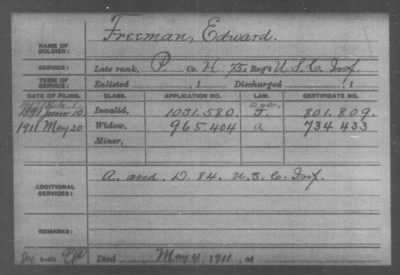 Freeman, Edward.
NAME OF SOLDIER:
SERVICE: Late rank, P Co. H, 75 Reg't U.S.C. Inf.
TERM OF SERVICE: Enlisted , 1 Discharged , 1
DATE OF FILING. CLASS. APPLICATION NO. LAW. CERTIFICATE NO.
1891 10 Invalid, 1031.580. J. 801.809.
1911 May 20 Widow, 965.404 a 734.433
Minor,
ADDITIONAL SERVICES: A. and D. 84. U.S.C. Inf.
REMARKS:
Died May 4, 1911, at